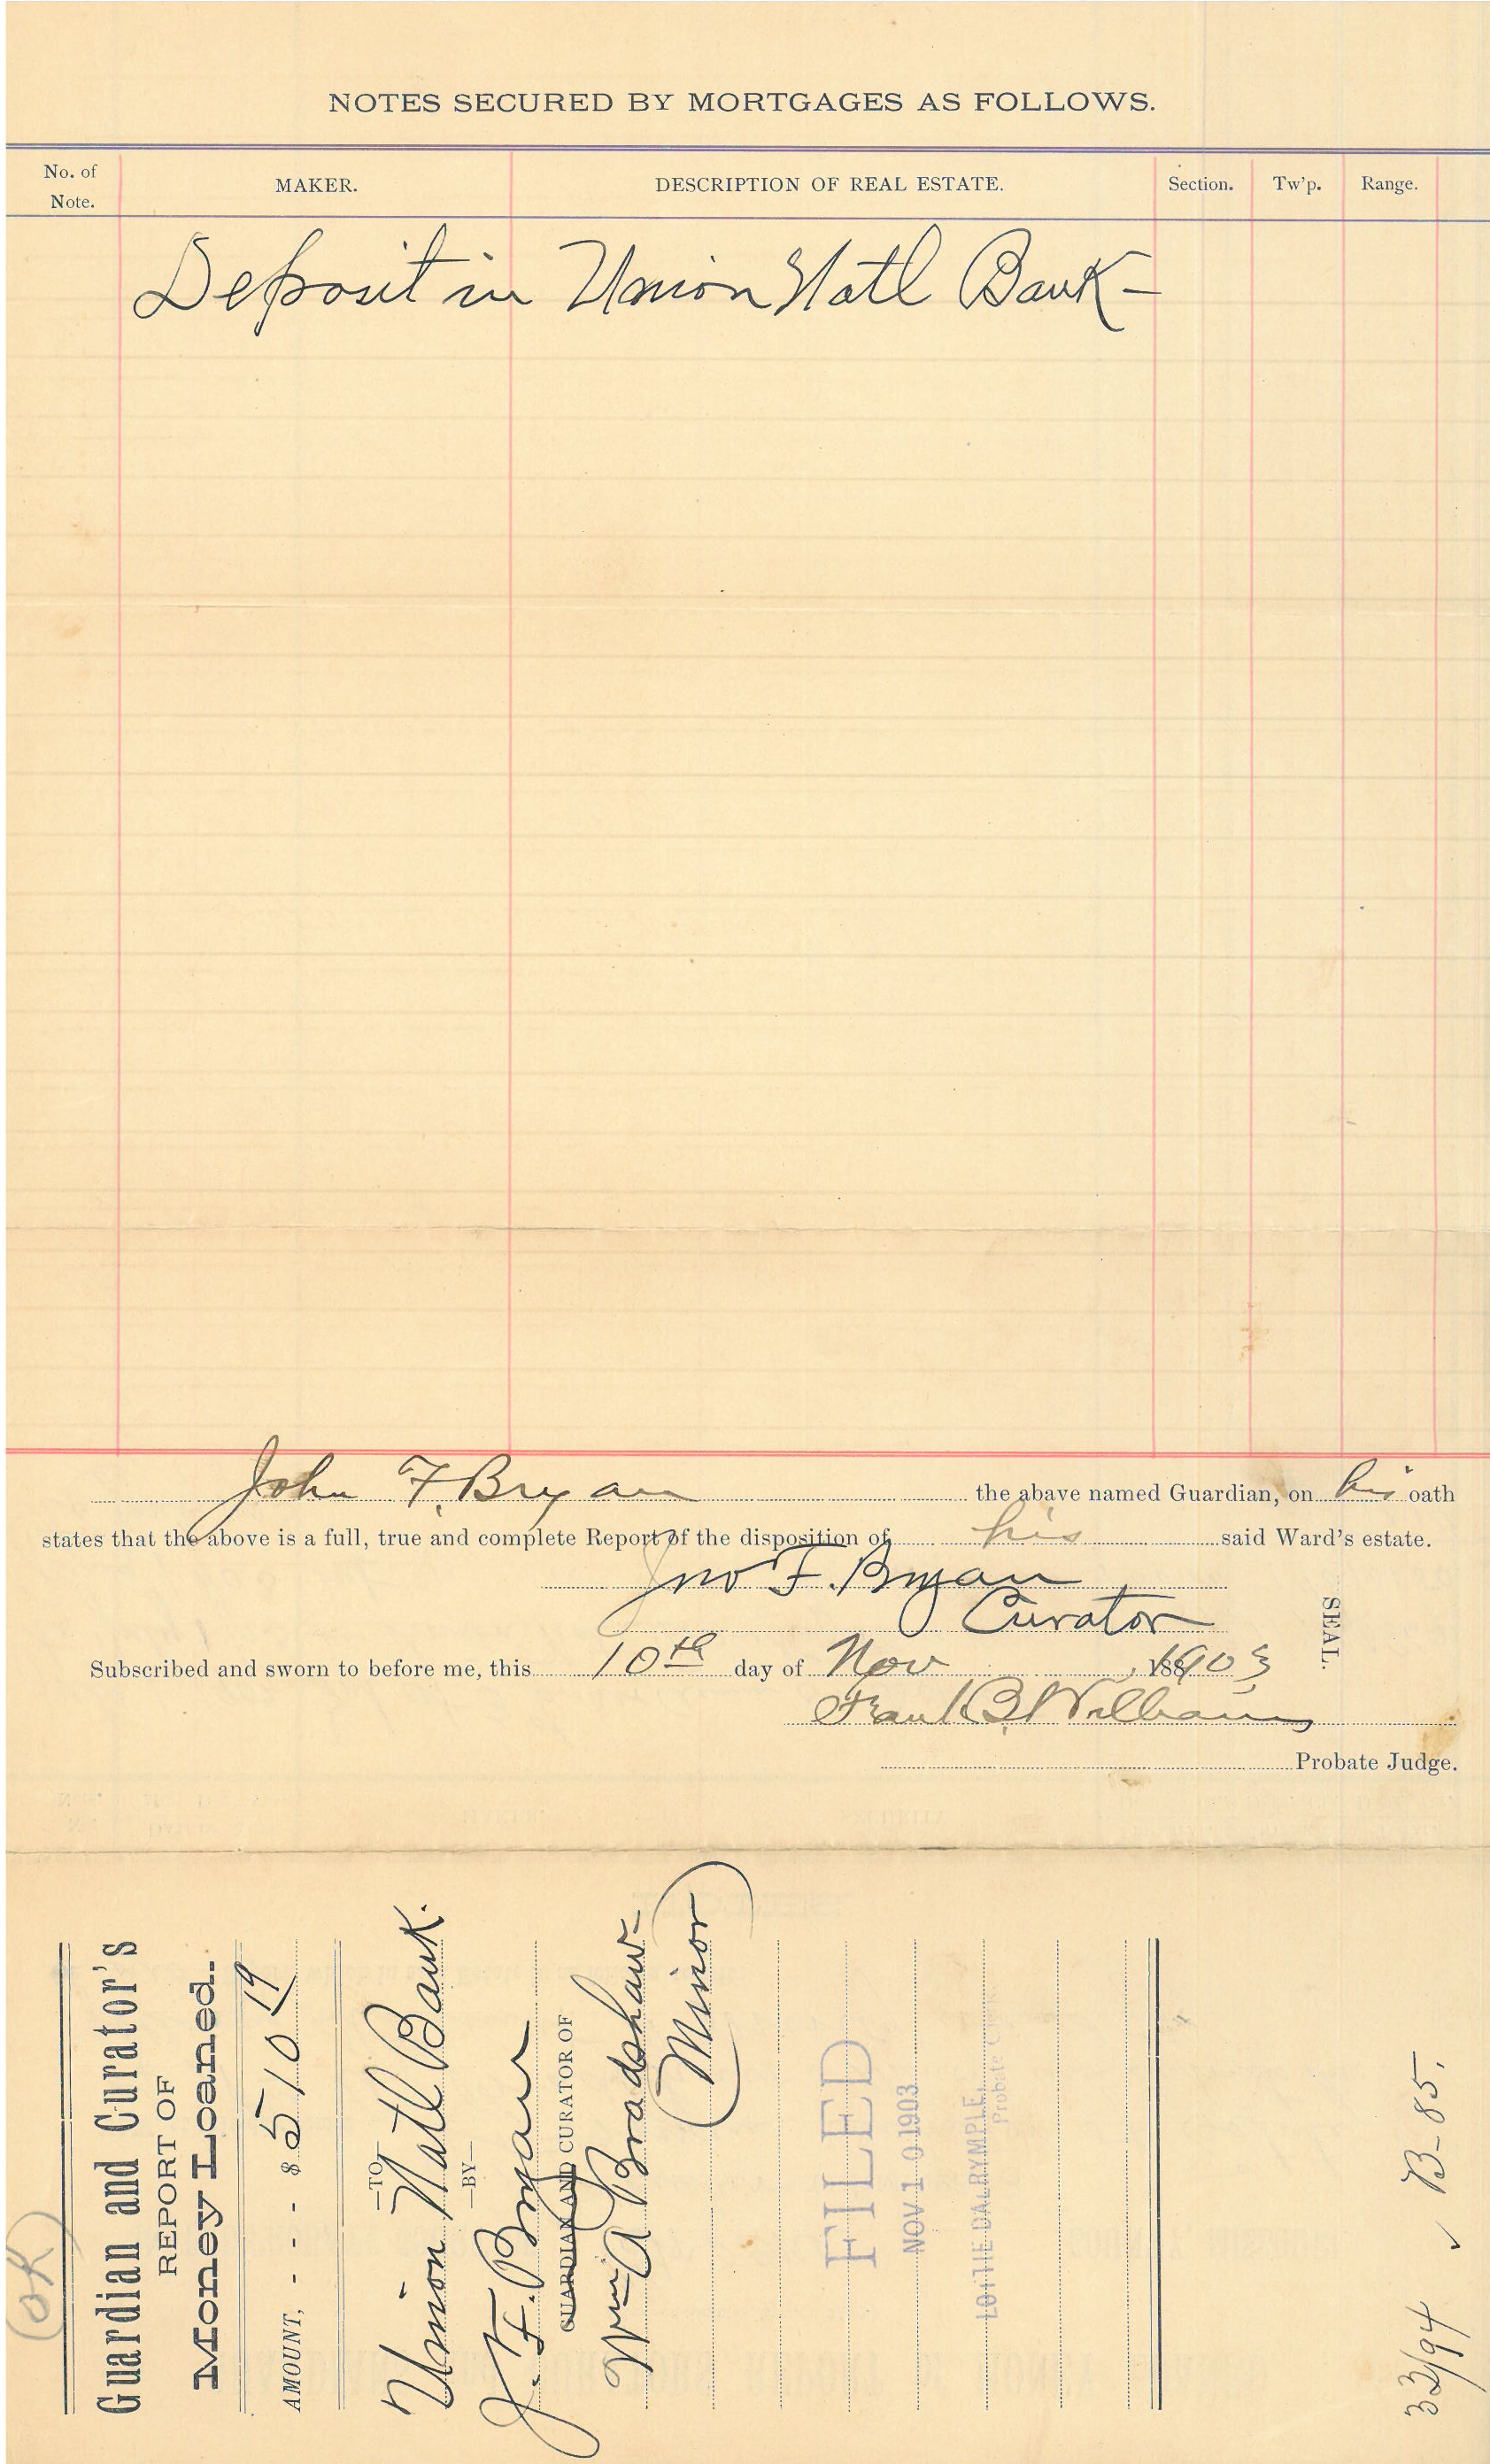 NOTES SECURED BY MORTGAGES AS FOLLOWS.
No. of Note. MAKER. DESCRIPTION OF REAL ESTATE. Section. Tw'p. Range.
Deposit in Union Natl Bank -
John F. Bryan the abave named Guardian, on his oath
states that the above is a full, true and complete Report of the disposition of his said Ward's estate.
Jno F. Bryan
Curator
SEAL.
Subscribed and sworn to before me, this 10th day of Nov 1903
Frank B. Williams
Probate Judge.
(OK)
Guardian and Curator's
REPORT OF
Money Loaned.
AMOUNT, - - - $ 510 19
—TO—
Union Natl Bank.
—BY—
J. F. Bryan
GUARDIAN AND CURATOR OF
Wm A Bradshaw-
(Minor)
FILED
NOV 10 1903
LOTTIE DALRYMPLE,
Probate
33/94 ✓ B-85.